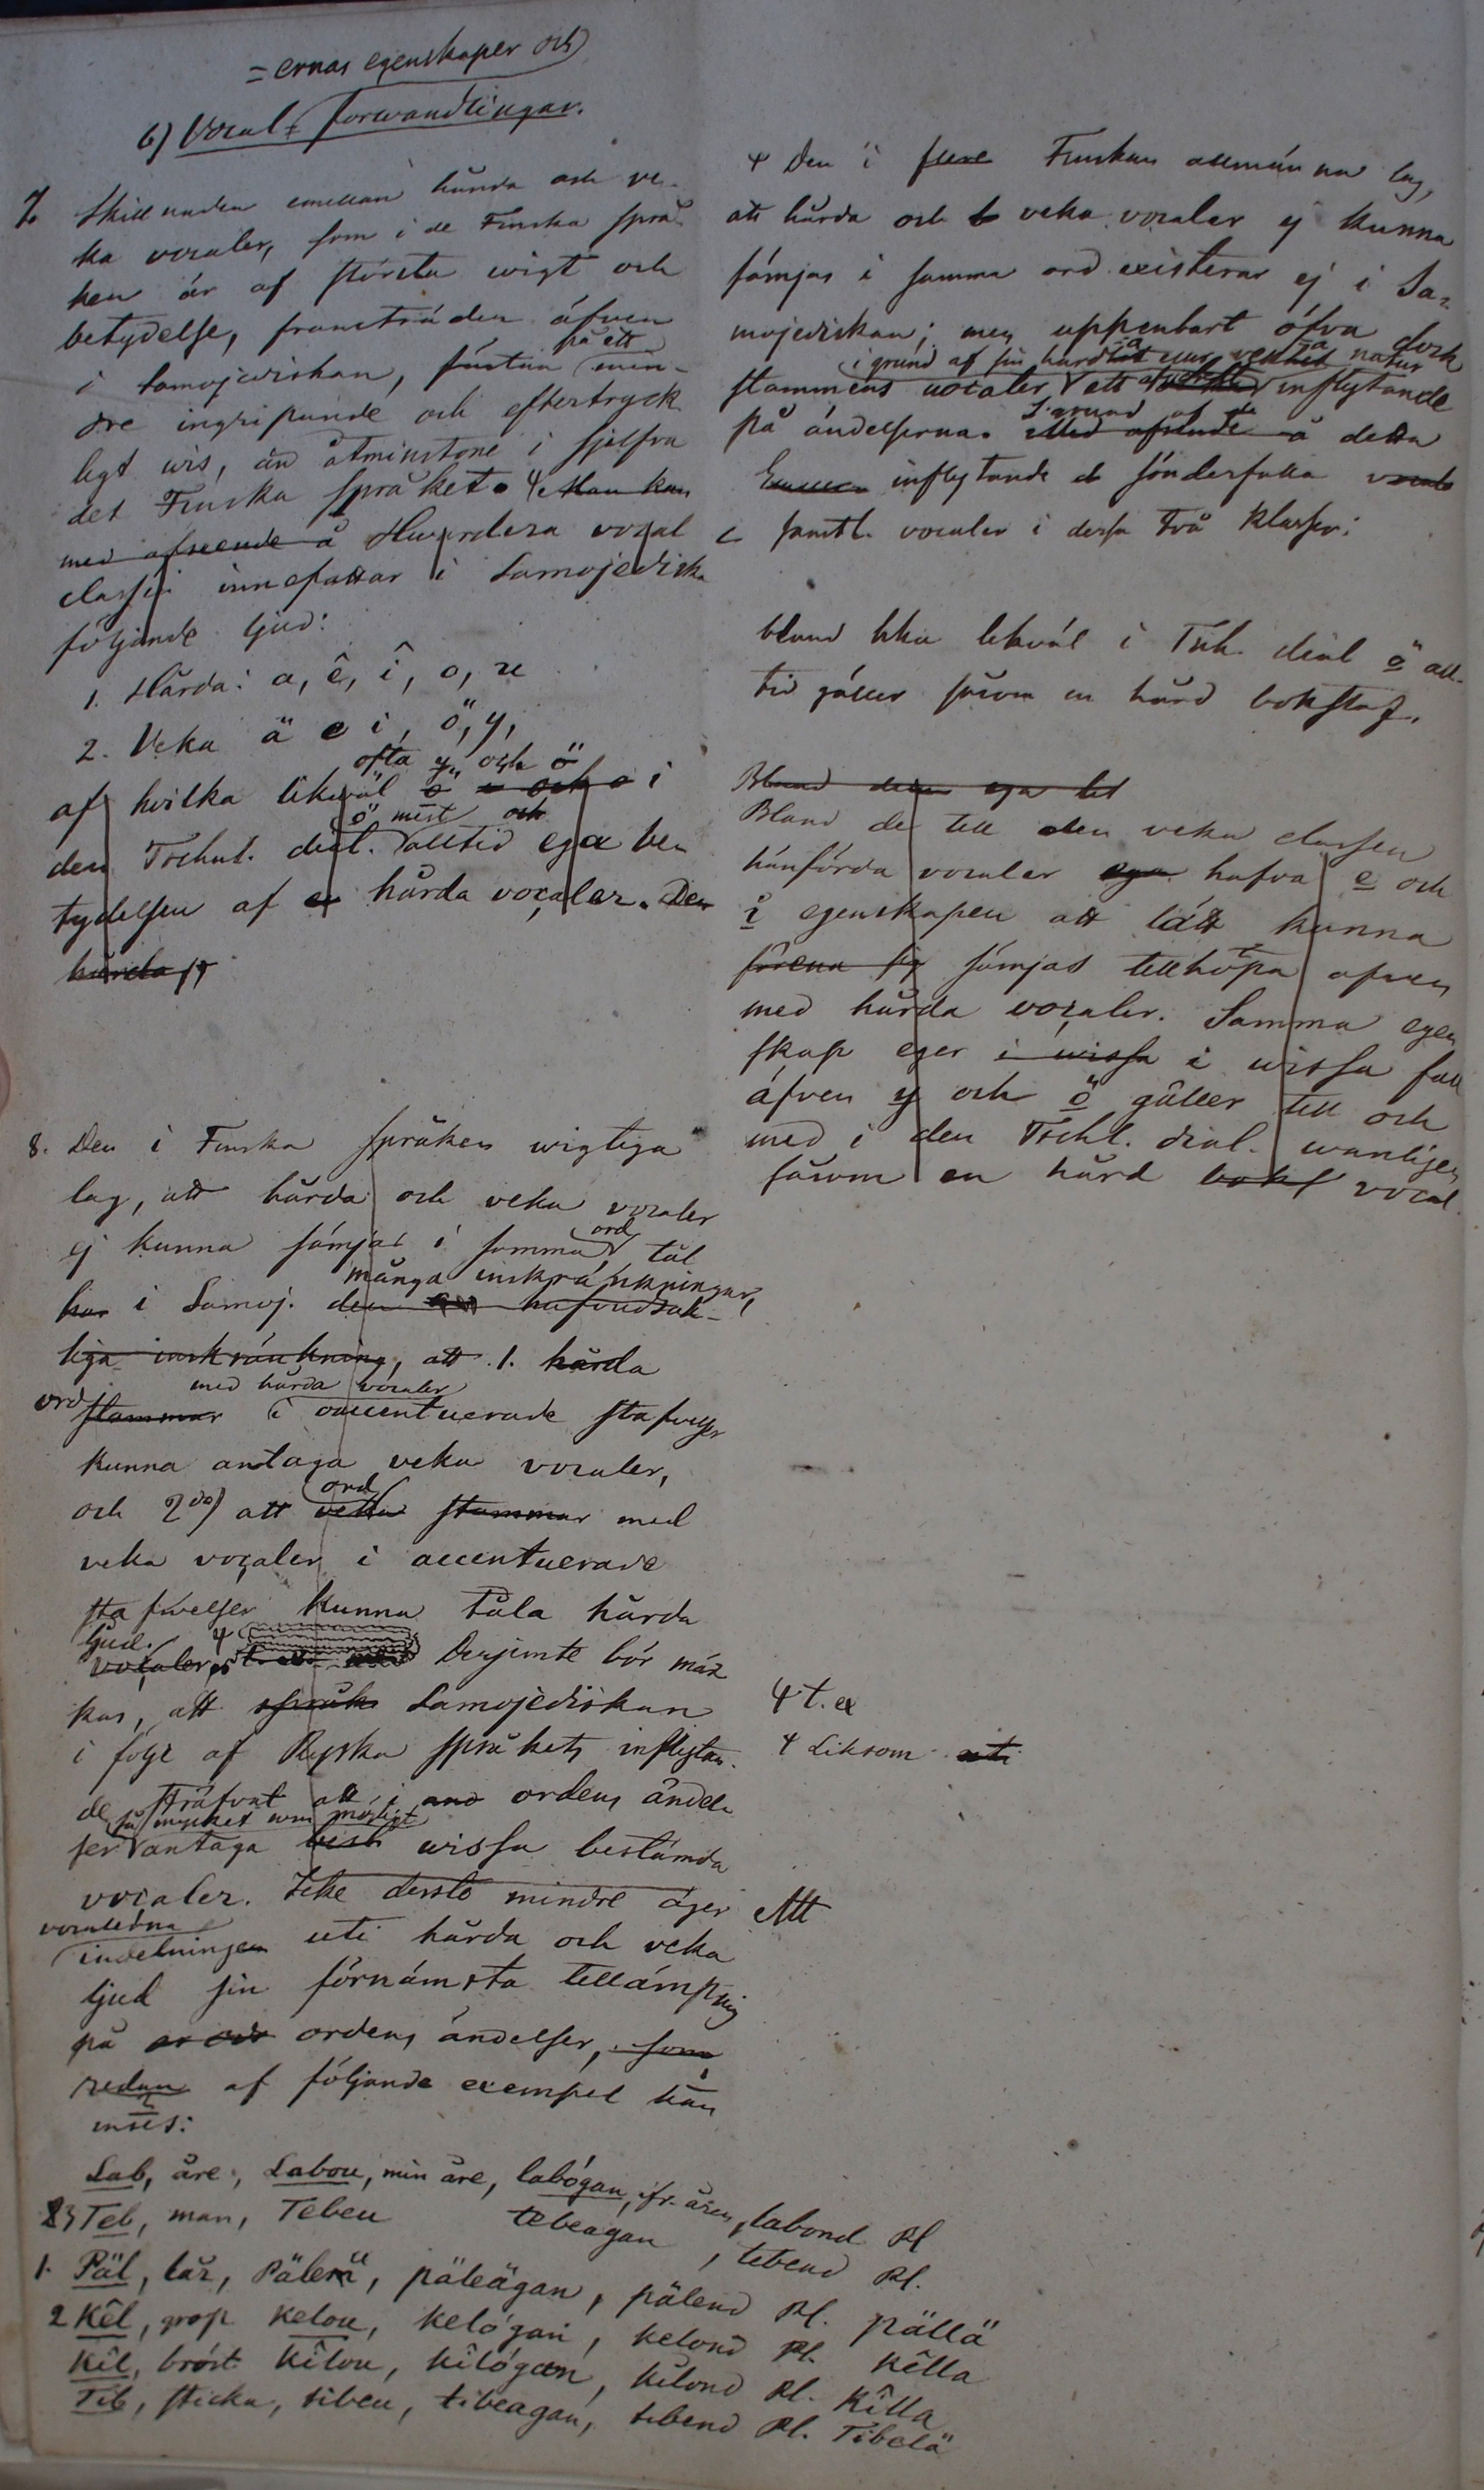 =ernas egenskaper och
6) Vocal= forwandlingar.
7. Skillnaden emellan hårda och ve-
ka vocaler, som i de Finska språ-
ken är af största wigt och
betydelse, framträder äfven
på ett
i Samojediskan, fastän min-
dre ingripande och eftertryck-
ligt wis, än åtminstone i sjelfva
det Finska språket. Ψ Man kan
med afseende å Hwardera vocal
classen innefattar i Samojediska
följande ljud:
1. Hårda: a, ê, î, o, u
2. Veka ä e i, ö, y,
ofta y, och ö
af hvilka likwäl ö e och o i
ö mest och
den Tschul. dial. alltid ega be-
tydelsen af en hårda vocaler. Den
hårda
8. Den i Finska språken wigtiga
lag, att hårda och veka vocaler
ord
ej kunna sämjas i samma tål
många inskränkningar,
har i Samoj. den hufvudsak-
liga inskränkning, att 1. hårda
med hårda vocaler
ord stammar i oaccentuerade stafvelser
kunna antaga veka vocaler,
ord
och 2do) att veka stammar med
veka vocaler i accentuerade
stafwelser kunna tåla hårda
ljud. Ψ
vocaler, Derjemte bör mär-
kas, att språk Samojediskan
i följe af Ryska språkets inflytan-
de sträfvat att i and ordens ändel-
så mycket som möjligt
ser antaga best wissa bestämda
vocaler. Icke desto mindre äger
vocalerna
indelningen uti hårda och veka
ljud sin förnämsta tillämpning
på ordens ändelser, som
redan af följande exempel kan
inses:
Lab, åre, Labou, min åre, labógan, ifr. åren, labond Pl
2) Teb, man, Tebeu tebeagan, tebend Pl.
1. Päl, lår, Päleu, päleägan, pälend Pl. pällä
2 Kêl, grop kelou, kelógan, kelond Pl. Kêlla
Kîl, bröst Kîlou, kîlógan, kîlond Pl. Kîlla
Tib, sticka, tibeu, tibeagan, tibend Pl. Tibelä
Ψ Den i flere Finskan allmänna lag,
att hårda och b veka vocaler ej kunna
sämjas i samma ord existerar ej i Sa-
mojediskan; men uppenbart öfva dock
i grund af sin hårdhet veka natur
stammens vocaler ett inflytande
I grund af
på ändelserna. Med afseende å detta
inflytande sönderfalla vocal
samtl. vocaler i dessa två klasser:
bland hka likväl i Tsch. dial ö all-
tid gäller såsom en hård bokstaf.
Bland dessa ega let
Bland de till den veka classen
hänförda vocaler ega hafva e och
i egenskapen att lätt kunna
förena sig sämjas tillhopa äfven
med hårda vocaler. Samma egen-
skap eger i wissa i wissa fall
äfven y och ö gäller till och
med i den Tschl. dial. wanligen
såsom en hård bokst vocal.
Ψ t. ex
Ψ Liksom uti
Att